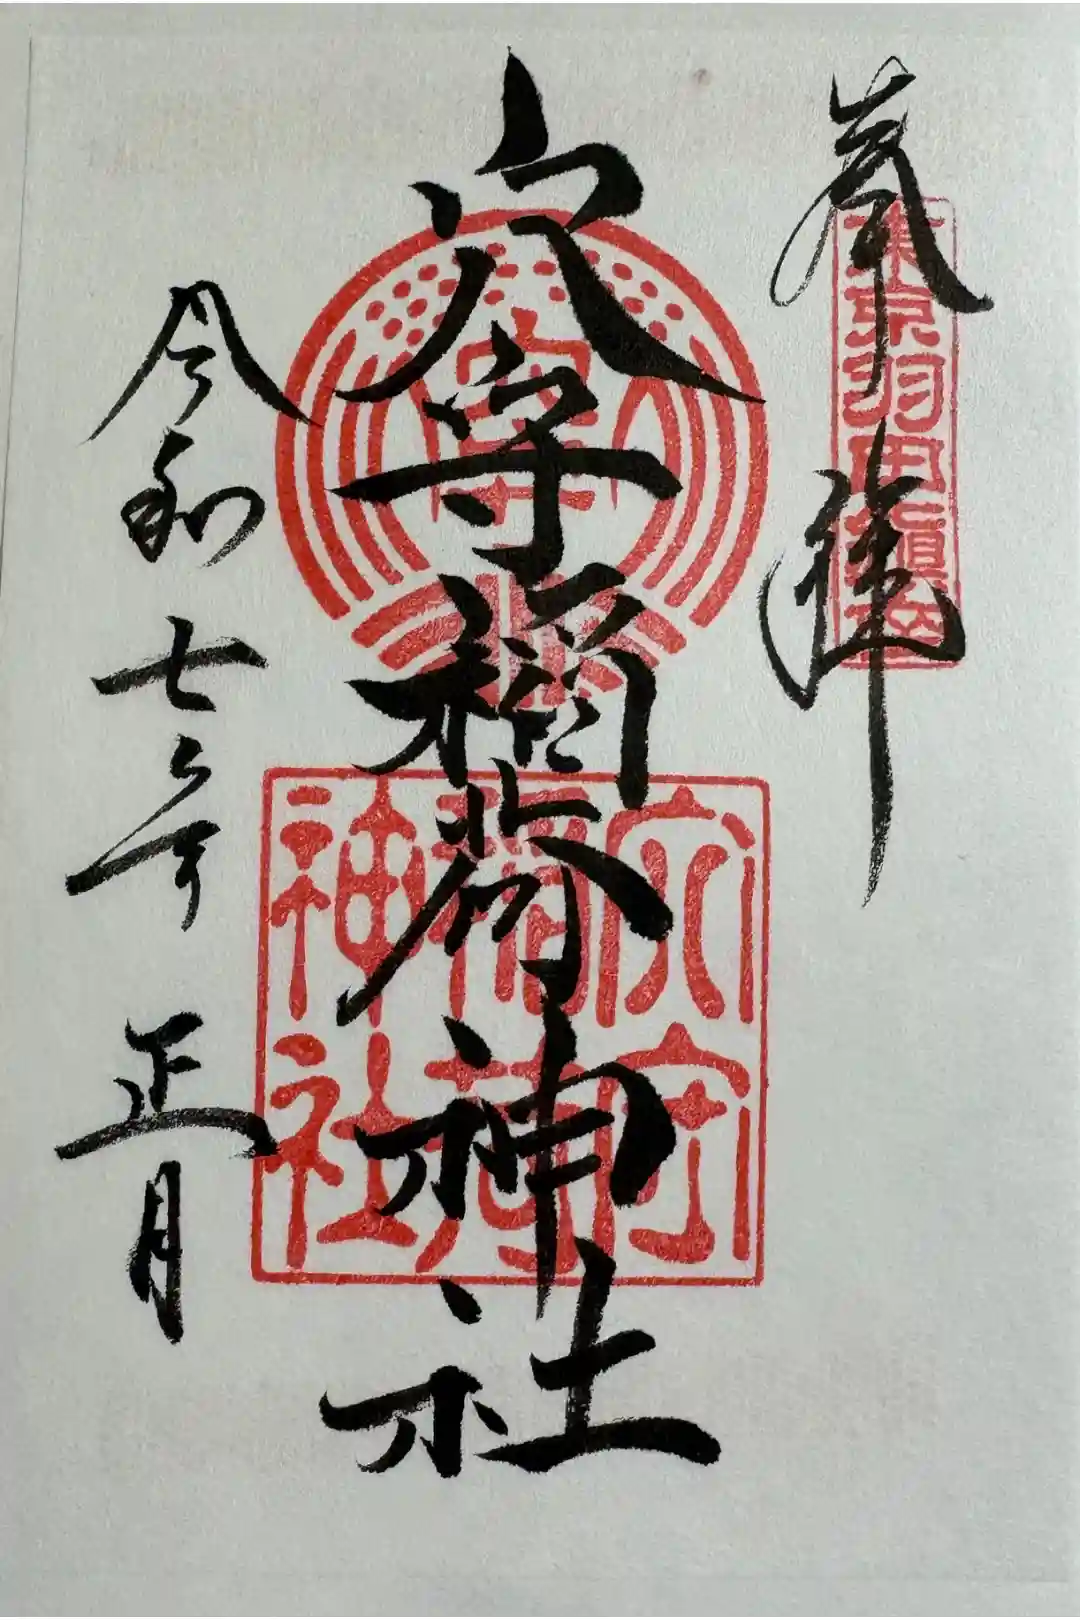 奉拝
東京羽田鎮座
穴守稲荷神社
穴守
稲荷
神社
令和七年正月